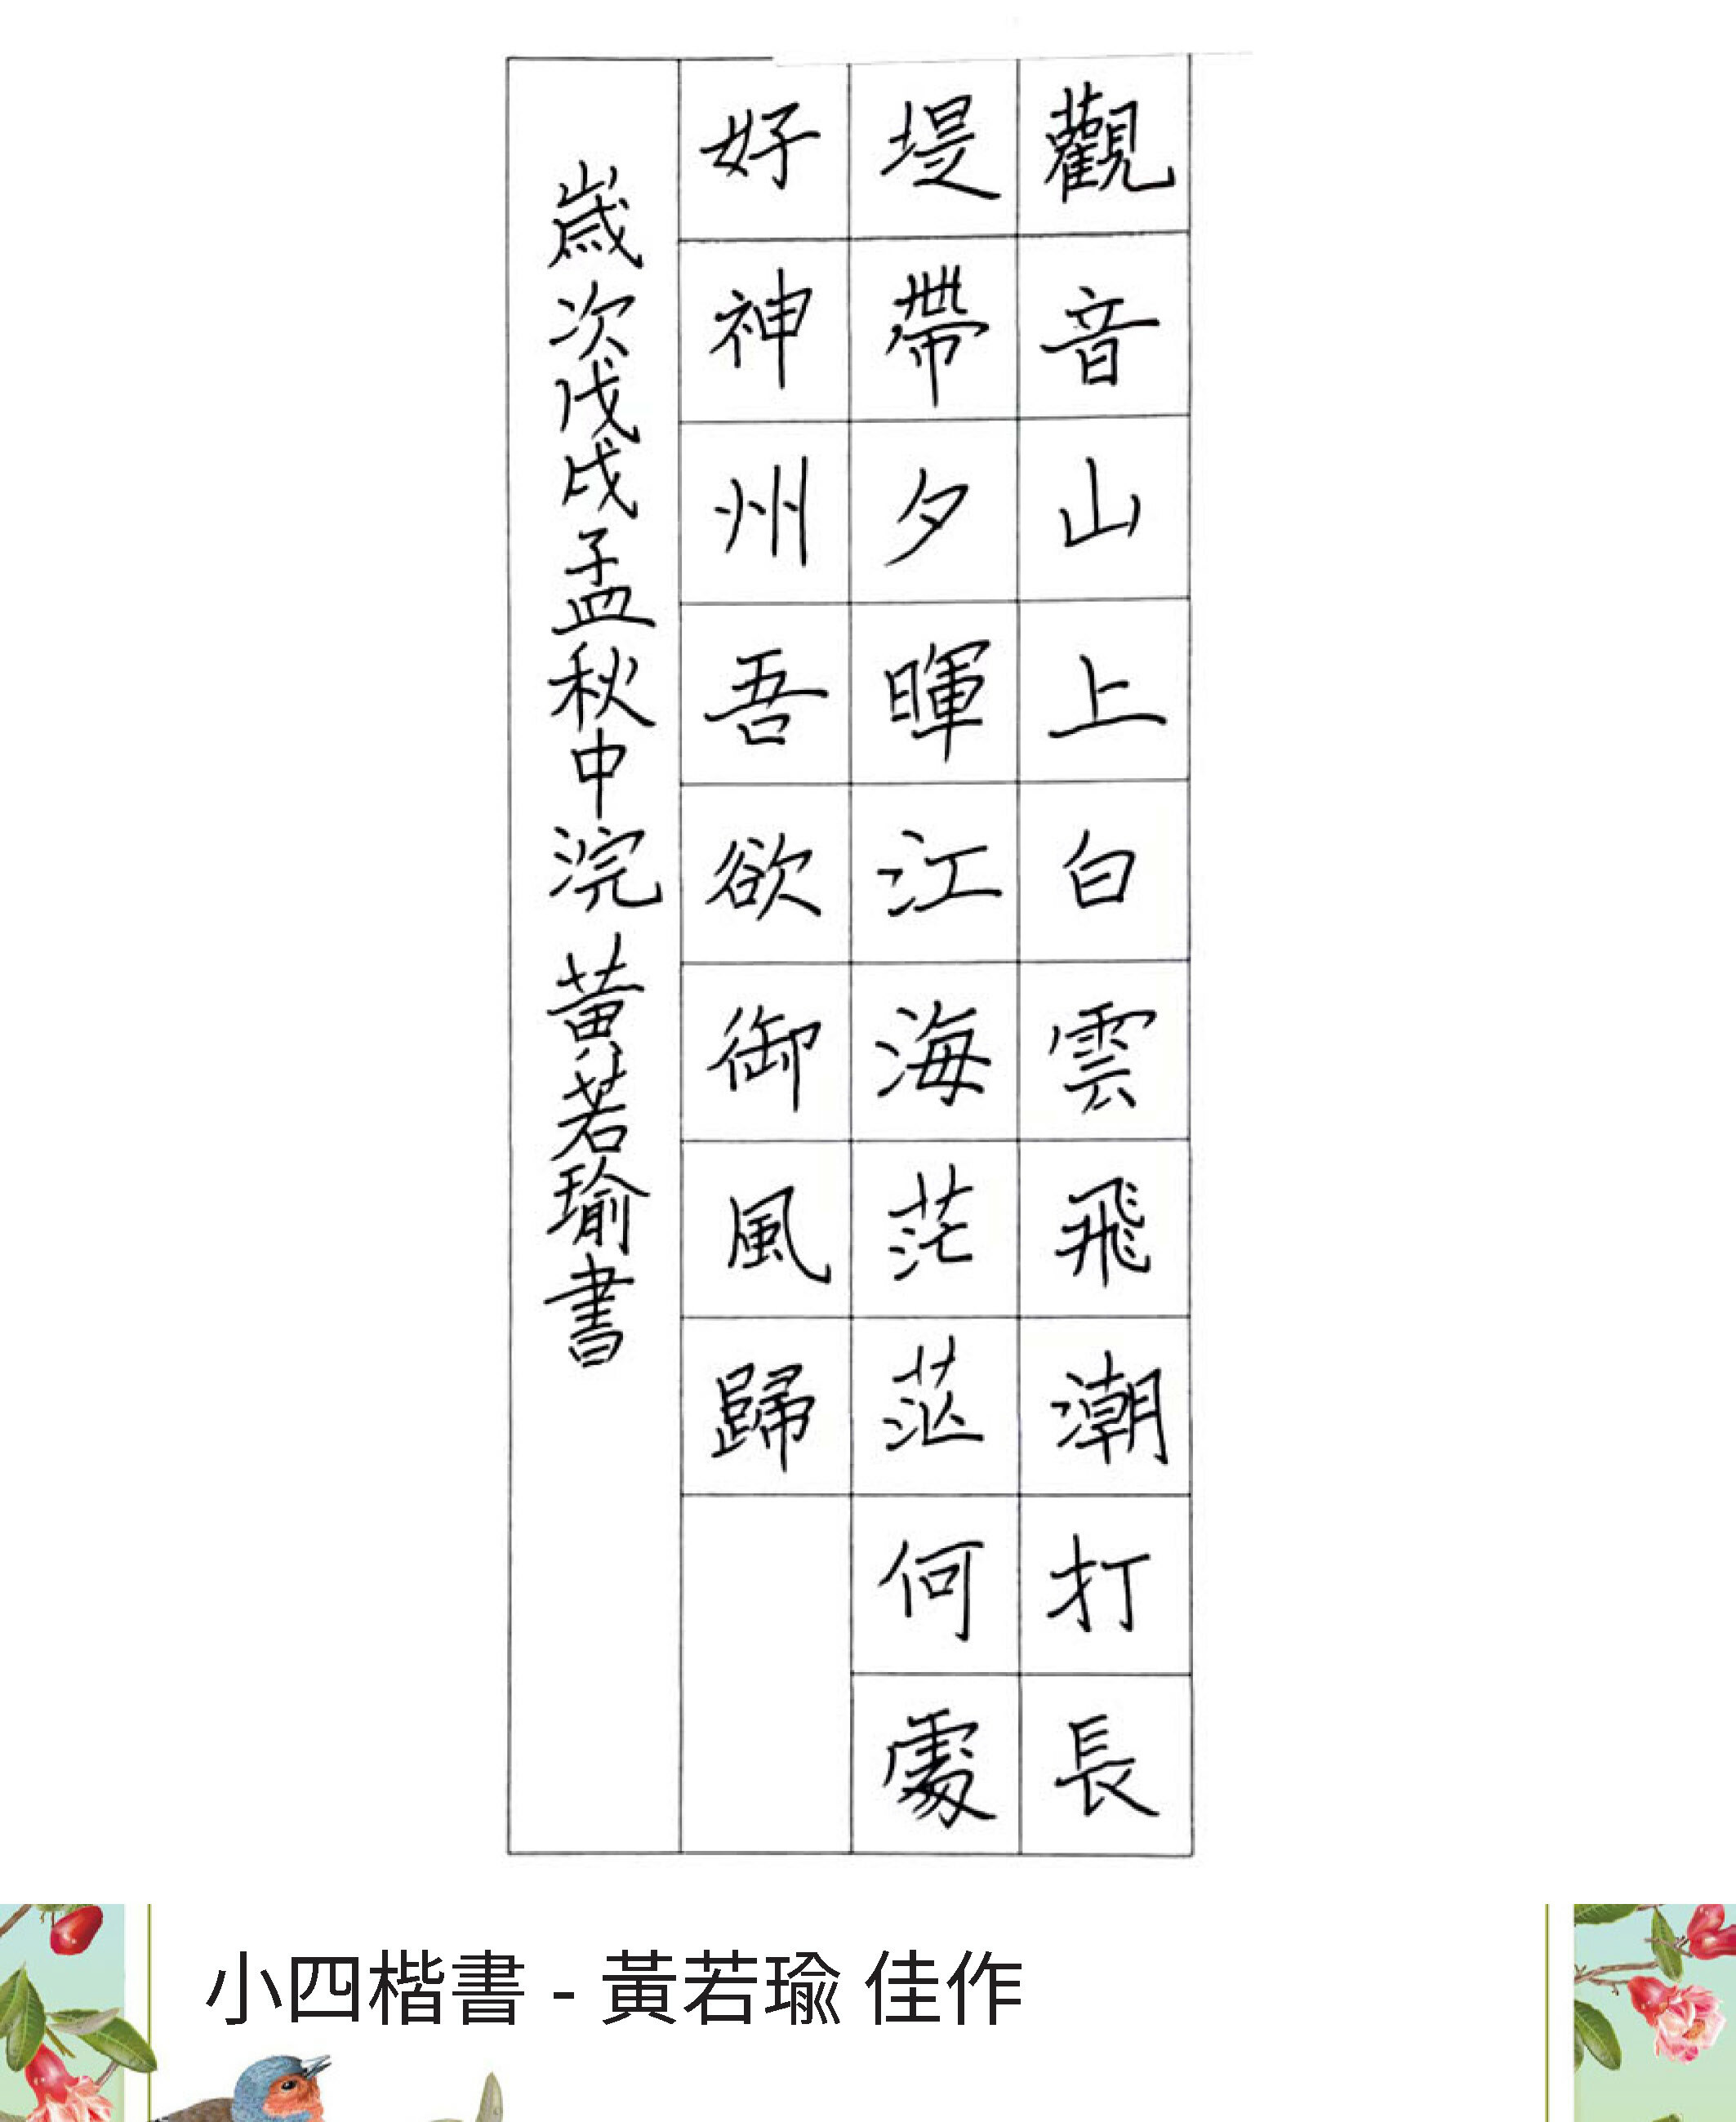 觀音山上白雲飛潮打長
堤帶夕暉江海茫茫何處
好神州吾欲御風歸
歲次戊戌孟秋中浣黃若瑜書
小四楷書 - 黃若瑜 佳作